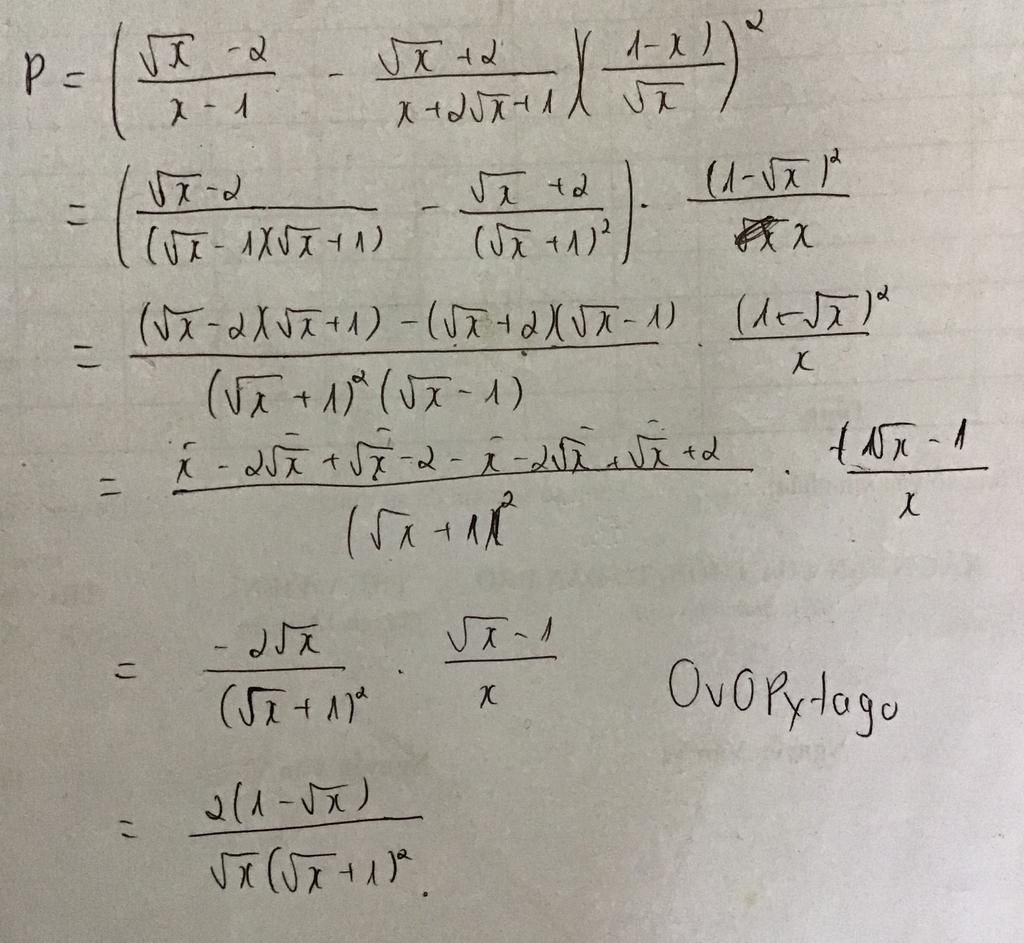 P = ( (√x - 2)/(x - 1) - (√x + 2)/(x + 2√x + 1) )( (1 - x)/√x )²
= ( (√x - 2)/((√x - 1)(√x + 1)) - (√x + 2)/(√x + 1)² ) . (1 - √x)²/x
= ((√x - 2)(√x + 1) - (√x + 2)(√x - 1))/((√x + 1)²(√x - 1)) . (1 - √x)²/x
= (x - 2√x + √x - 2 - x - 2√x + √x + 2)/(√x + 1)² . (√x - 1)/x
= (-2√x)/(√x + 1)² . (√x - 1)/x
OvOPytago
= 2(1 - √x)/(√x(√x + 1)²).